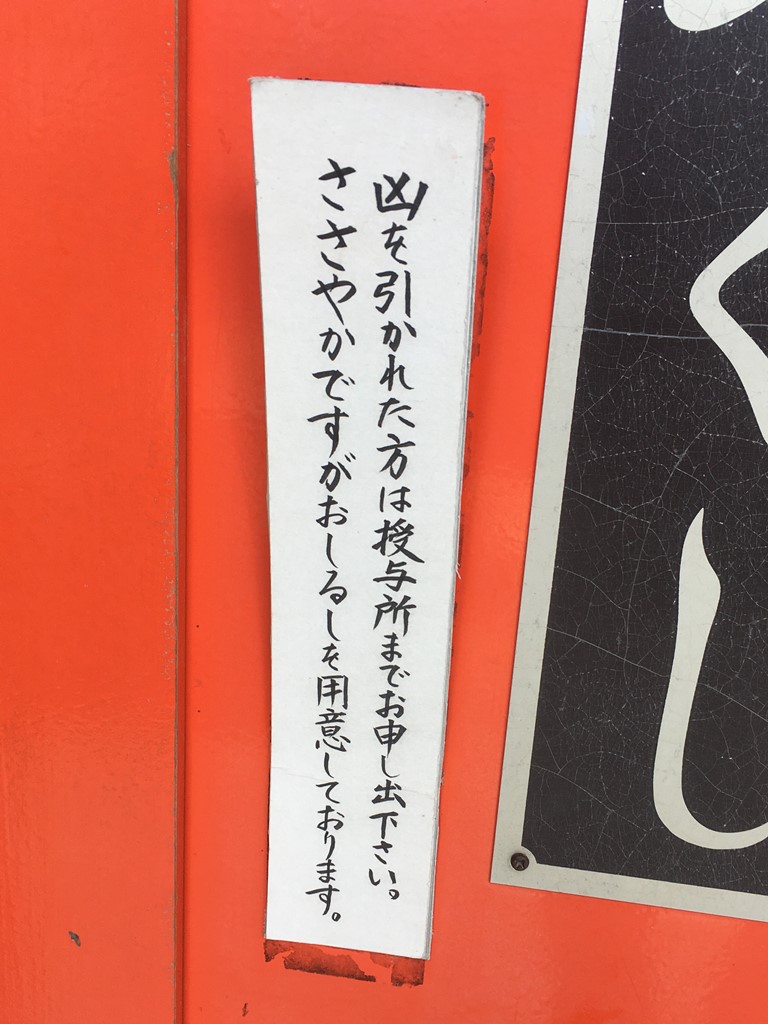 凶を引かれた方は授与所までお申し出下さい。
ささやかですがおしるしを用意しております。